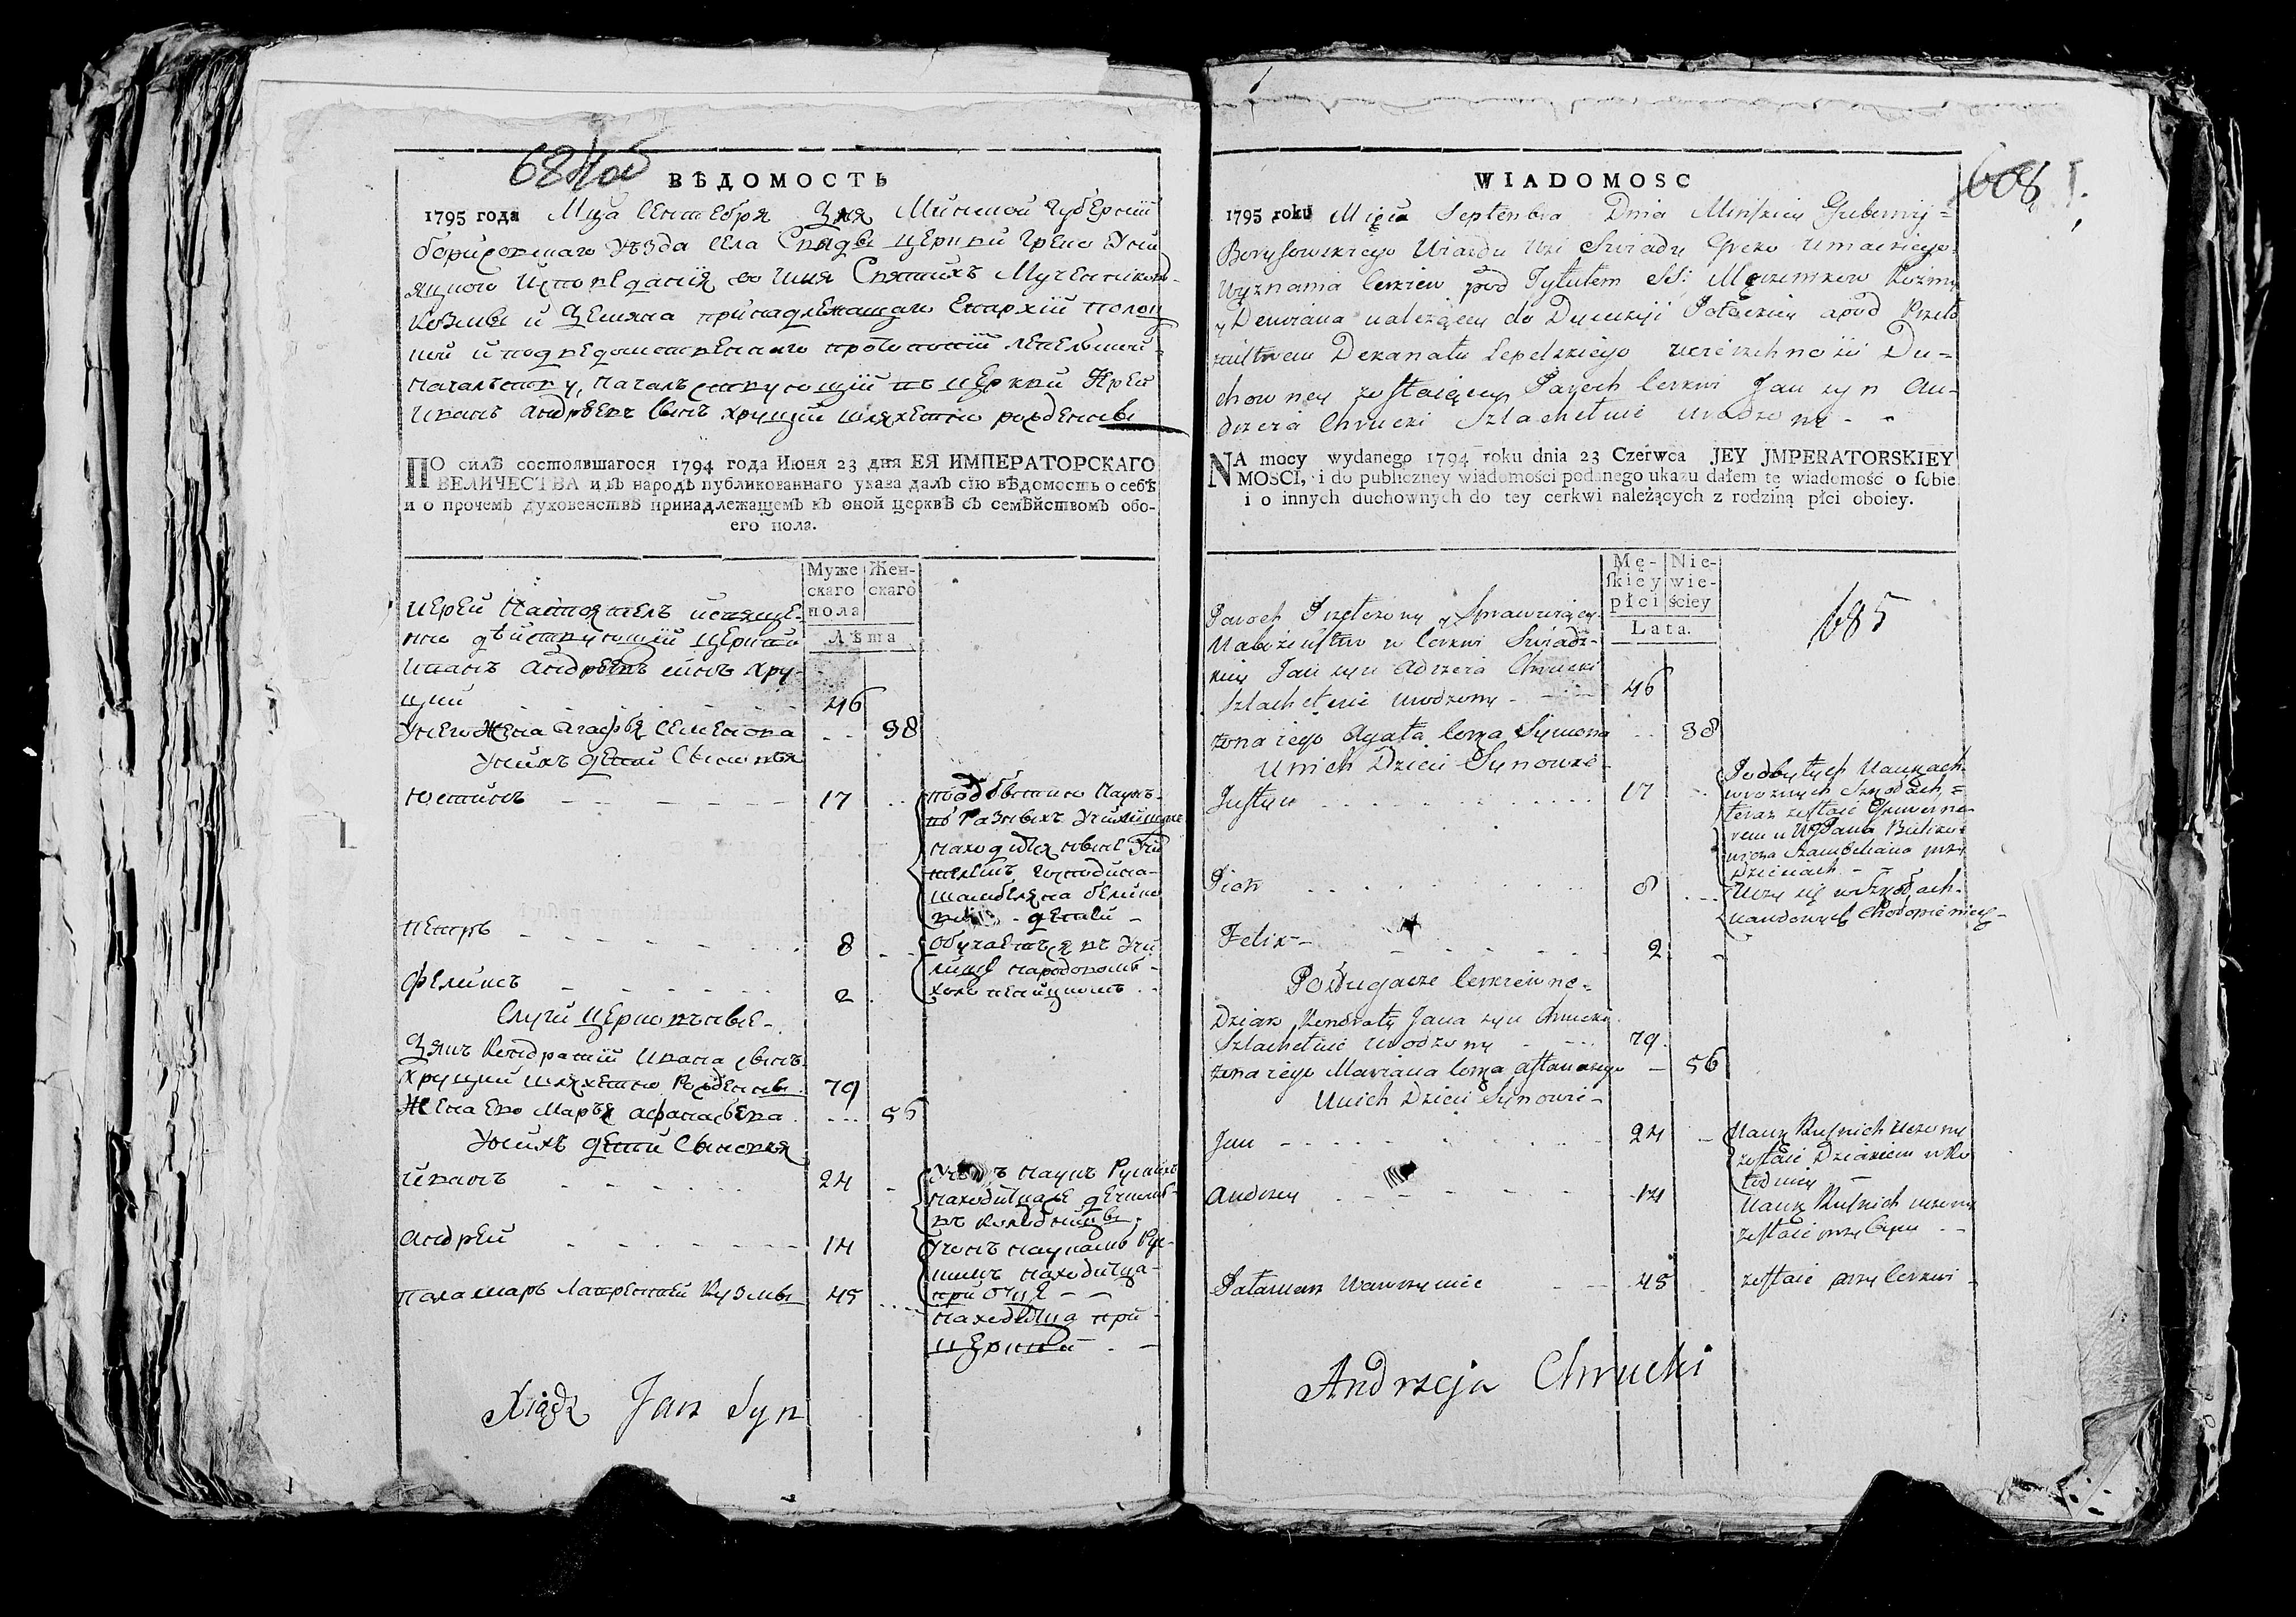 ВѢДОМОСТЬ
1795 года Мца Сентебря Дня Минской Губернїи
борисовскаго Уѣзда села Свяды церкви Греко Уни
яцкого Исповеданїя во имя Святихъ Мучениковъ
Козмы и Демяна принадлежащаго Епархїи полоц
кой и под ведомственнаго протопопїи Лепельской
началству, началствующїй въ церкви Ерей
Иванъ Андреевъ Сынъ хруцкий шляхетно рожденны
ПО силѣ состоявшагося 1794 года Июня 23 дня ЕЯ ИМПЕРАТОРСКАГО
ВЕЛИЧЕСТВА и въ народѣ публикованнаго указа далъ сїю вѣдомость о себѣ
и о прочемъ духовенствѣ принадлежащемъ къ оной церквѣ съ семѣйствомъ обо-
его пола.
Муже Жен-
скаго скаго
пола
Лѣта
иерей Настоятель
действующїй церкви
Иванъ Андреевъ синъ Хру-
цкий 46
У него Жена Агафья Семенова 38
У нихъ детей Сыновья
Юстинъ 17
в разныхъ
находится ныне Учи
телемъ Господина
шамбеляна
детей
Петръ 8 обучается въ Учи
лище народномъ
холопеницкомъ
Феликсъ 2
Слуги церковные
Дякъ Кендратїй Ивана сынъ
Хруцкий шляхетно Рожденны 79
Жена Ево Марья афанасьева 56
У нихъ дети Сыновья
Иванъ 24 наукъ Руских
находится дечкомъ
въ
Андрей 14 Учонъ наукамъ Рус-
кимъ находитца
при Отце
Паламарь Лаврентей Кузмы 45
находитца при
церкви
Xiądz Jan Syn
WIADOMOSC
608
1795 roku Mięca Septenbra Dnia Minskiey Gubernij=
Borysowskiego Uiazdu Wsi Swiady Greko Uniackiego
Wyznania Cerkiew pod Tytułem SS: Męczenikow Kozmy
y Demiana należący do Dyecezyi Połockiey a pod Przeło
żeństwem Dekanatu Lepelskiego zwierzchności Du=
chowney zostaiącey Paroch Cerkwi Jan syn An-
drzeia Chrucki Szlachetnie urodzony
NA mocy wydanego 1794 roku dnia 23 Czerwca JEY JMPERATORSKIEY
MOSCI, i do publiczney wiadomości podanego ukazu dałem tę wiadomość o sobie
i o innych duchownych do tey cerkwi należących z rodziną płci oboiey.
Mę- Nie-
skiey wie-
płci ściey
Lata.
685
Paroch Przełożony y Sprawuiący
Nabożeństwo w Cerkwi Swiadz-
kiey Jan syn Adrzeia Chrucki
Szlachetnie urodzony 46
żona iego Agata Corka Symona 38
U nich Dzieci Synowie
Justyn 17 Podbytych Naukach
w roznych Szkołach
teraz zostaie Guwerne-
rem u
Szambeliana przy
Dzieciach
Piotr 8 Uczy się w Szkołach
Felix 2
Posługacze Cerkiewne
Dziak Kendraty Jana syn Chrucki
Szlachetnie urodzony 79
żona iego Mariana Corka 56
U nich Dzieci Synowie
Jan 24 Nauk Ruskich uczony
zostaie Dziakiem
Andrzey 14 Nauk Ruskich uczony
zostaie przy Oycu
Patamarz Wawrzyniec 45 zostaie przy Cerkwi
Andrzeja Chrucki